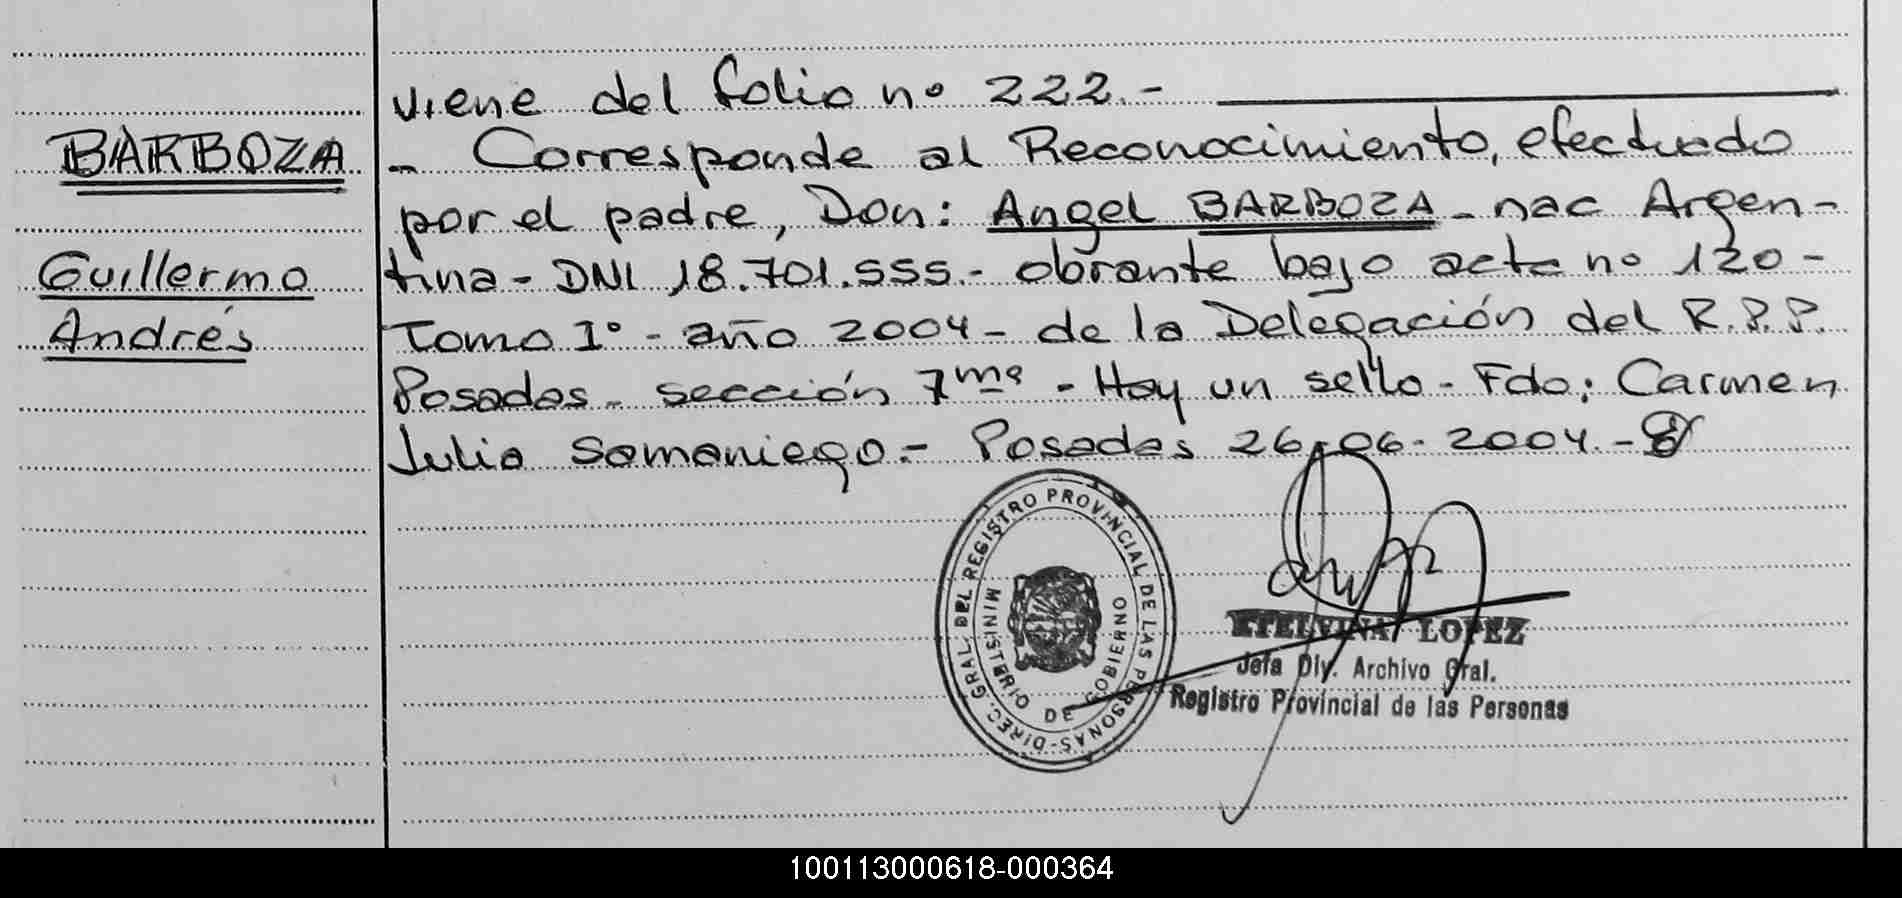 viene del folio nº 222.-
BARBOZA
- Corresponde al Reconocimiento, efectuado
por el padre, Don: Angel BARBOZA - nac Argen-
Guillermo
tina - DNI 18.701.555.- obrante bajo acta nº 120 -
Andrés
Tomo Iº - año 2004 - de la Delegación del R.P.P.
Posadas - sección 7ma - Hay un sello - Fdo: Carmen
Julia Samaniego.- Posadas 26-06-2004.-
DIREC. GRAL. DEL REGISTRO PROVINCIAL DE LAS PERSONAS-
MINISTERIO DE GOBIERNO
ETELVINA LOPEZ
Jefa Div. Archivo Gral.
Registro Provincial de las Personas
100113000618-000364